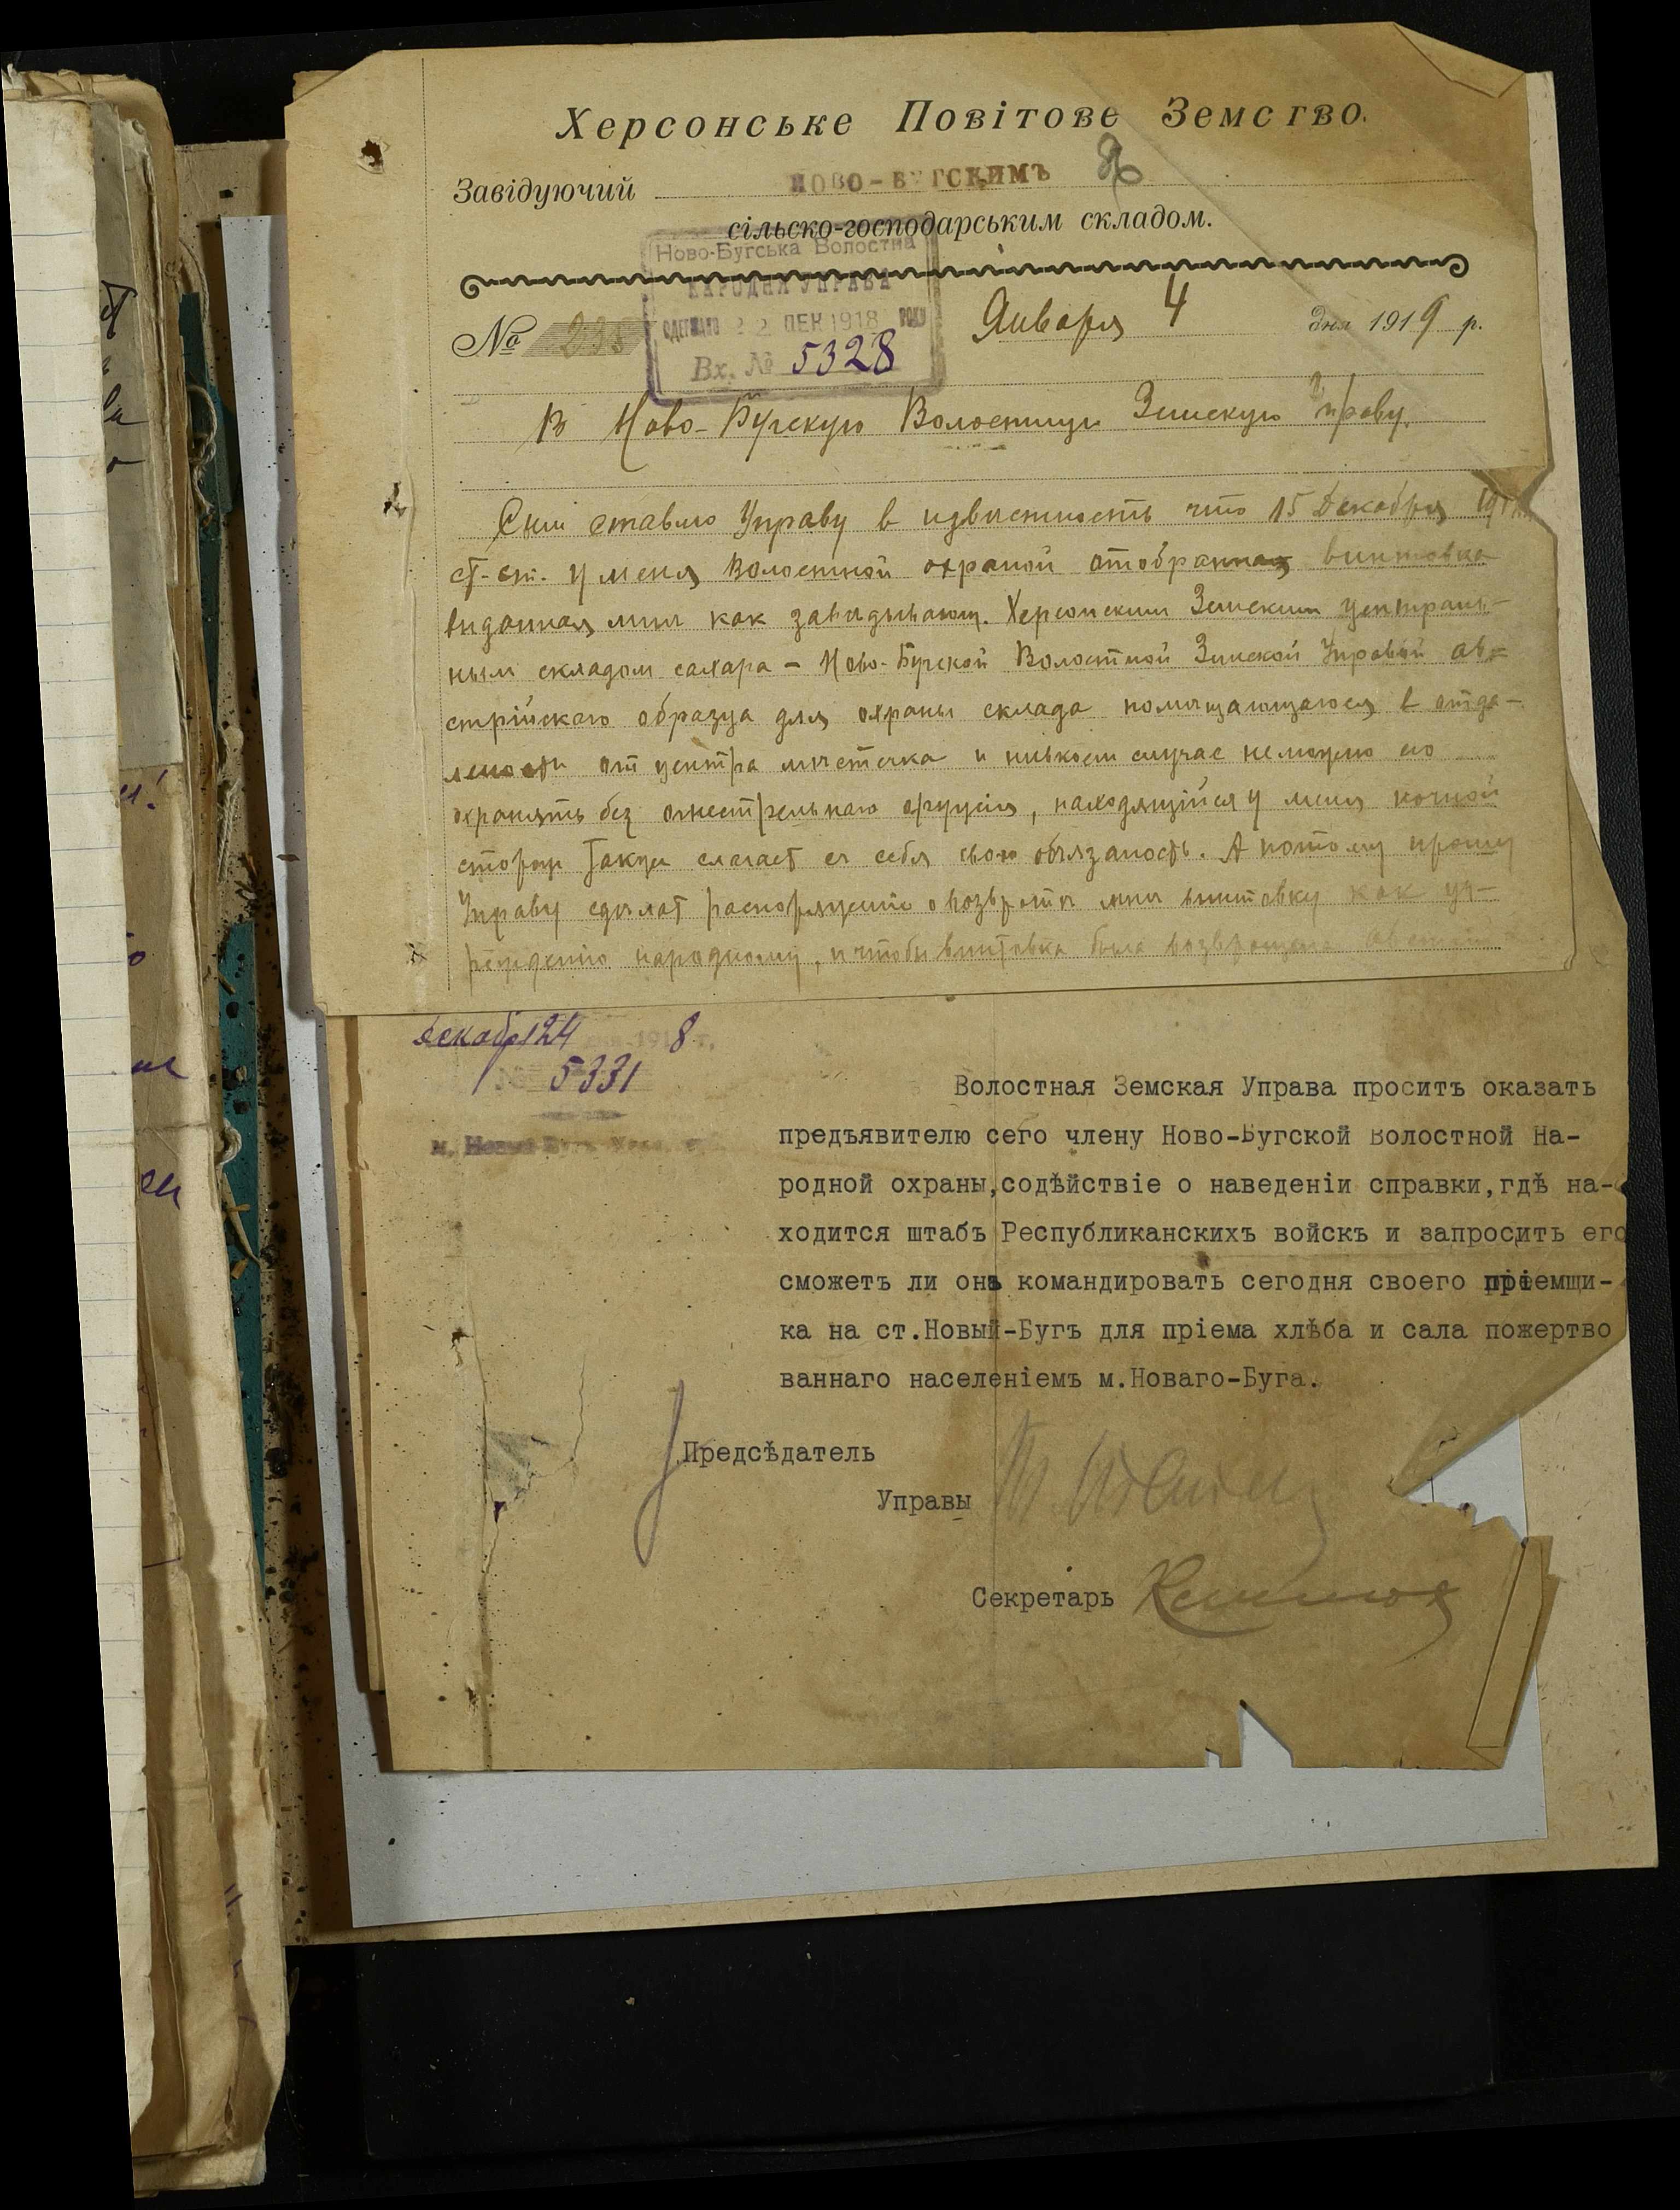 Херсонське Повітове Земство.
Завідуючий НОВО-БУГСКИМЪ
сільско-господарським складом.
Ново-Бугська Волостна
НАРОДНА УПРАВА
ОДЕРЖАНО 22 ДЕК 1918 РОКУ
Вх. № 5328
№ 235 Января 4 дня 1919 р.
В Ново-Бугскую Волостную Земскую Управу.
Сим ставлю Управу в извѣстность что 15 Декабря
ст-ст. у меня Волостной охраной отобранная винтовка
выданная мнѣ как завѣдывающ. Херсонским Земским централь-
ным складом сахара - Ново-Бугской Волостной Земской Управой ав=
стрійскаго образца для охраны склада помѣщающагося в отда-
лености от центра мѣстечка и случае неможно его
охранять без огнестрѣльнаго оружія, находящійся у меня ночной
сторож также слагает с себя свою обязаность. А потому прошу
Управу сдѣлат распоряженіе о возвратѣ мнѣ винтовку как уч-
режденію народному, и чтобы винтовка была возвращена
Декабр 24 дня 1918 г.
№ 5331
м. Новый-Бугъ, Херс. г.
Волостная Земская Управа проситъ оказать
предъявителю сего члену Ново-Бугской Волостной На-
родной охраны,содѣйствіе о наведеніи справки,гдѣ на-
ходится штабъ Республиканскихъ войскъ и запросить его
сможетъ ли онъ командировать сегодня своего пріемщи-
ка на ст.Новый-Бугъ для пріема хлѣба и сала пожертво
ваннаго населеніемъ м.Новаго-Буга.
Предсѣдатель
Управы
Секретарь